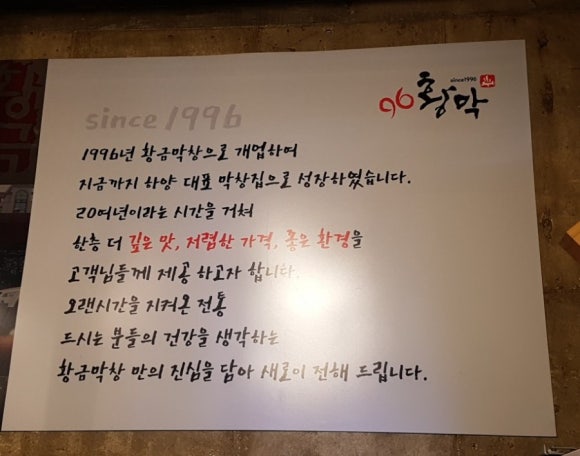 since1996
96황막
since 1996
1996년 황금막창으로 개업하여
지금까지 하양 대표 막창집으로 성장하였습니다.
20여년이라는 시간을 거쳐
한층 더 깊은 맛, 저렴한 가격, 좋은 환경을
고객님들께 제공 하고자 합니다.
오랜시간을 지켜온 전통
드시는 분들의 건강을 생각하는
황금막창 만의 진심을 담아 새로이 전해 드립니다.